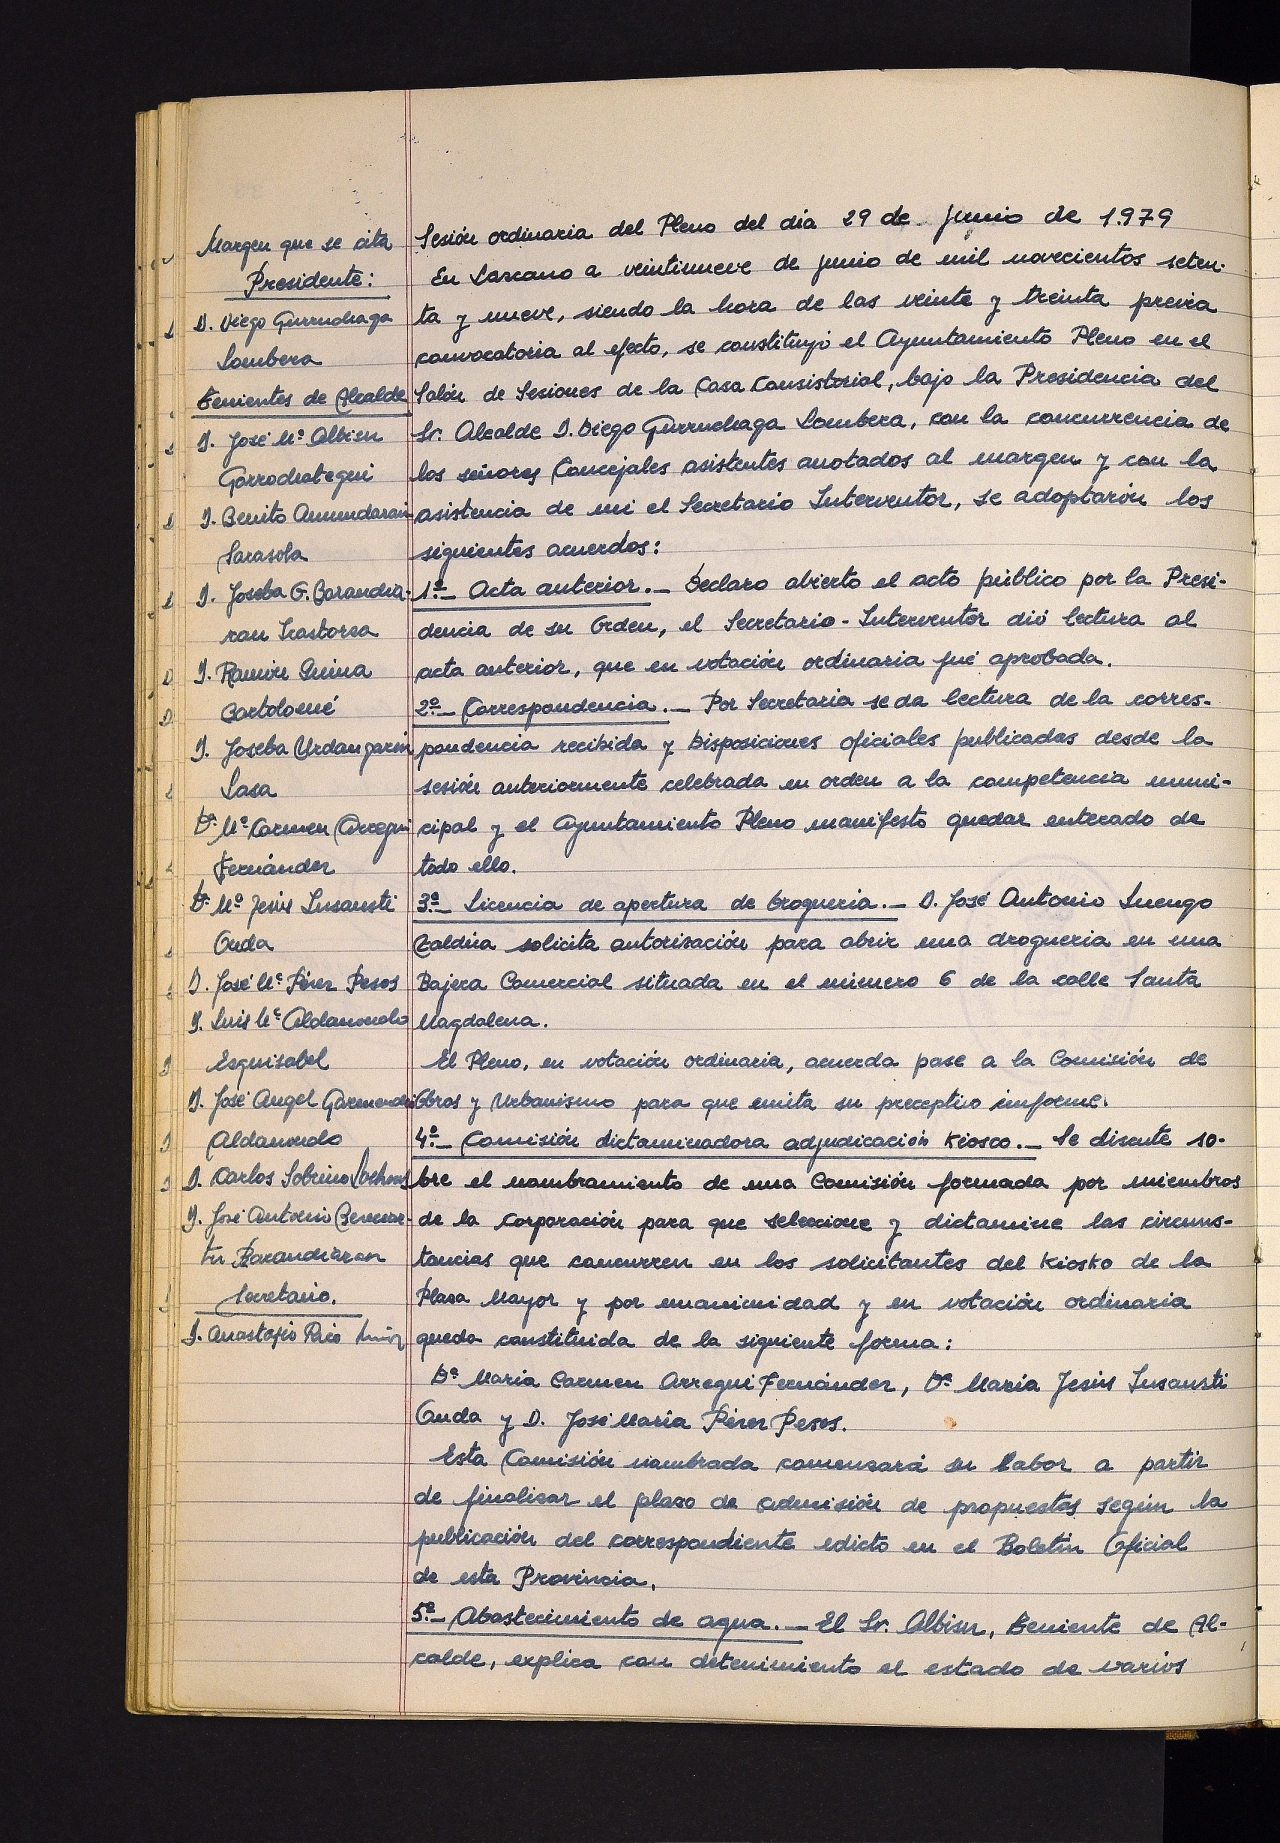 Margen que se cita
Presidente:
D. Diego Gurruchaga
Lombera
Tenientes de Alcalde
D. José Mª Albisu
Garrochategui
D. Benito Amundarain
Sarasola
D. Joseba G. Barandia-
ran Irastorza
D. Ramón
Bartolomé
D. Joseba Urdangarin
Lasa
Dª Mª Carmen Arregui
Fernández
Dª Mª Jesús Insausti
Onda
D. José Mª Pérez Pesos
D. Luis Mª Aldanondo
Esquisabel
D. José Angel Garmendi
Aldanondo
D. Carlos Sobrino
D. José Antonio
Barandiaran
Secretario.
D. Anastasio
Sesión ordinaria del Pleno del día 29 de junio de 1.979
En Lazcano a veintinueve de junio de mil novecientos seten-
ta y nueve, siendo la hora de las veinte y treinta previa
convocatoria al efecto, se constituyó el Ayuntamiento Pleno en el
Salón de Sesiones de la Casa Consistorial, bajo la Presidencia del
Sr. Alcalde D. Diego Gurruchaga Lombera, con la concurrencia de
los señores Concejales asistentes anotados al margen y con la
asistencia de mi el Secretario Interventor, se adoptarón los
siguientes acuerdos:
1º.- Acta anterior.- Declaro abierto el acto público por la Presi-
dencia de su Orden, el Secretario-Interventor dió lectura al
acta anterior, que en votación ordinaria fué aprobada.
2º.- Correspondencia.- Por Secretaria se da lectura de la corres-
pondencia recibida y Disposiciones oficiales publicadas desde la
sesión anteriormente celebrada en orden a la competencia muni-
cipal y el Ayuntamiento Pleno manifesto quedar enterado de
todo ello.
3º.- Licencia de apertura de Drogueria.- D. José Antonio Luengo
Zaldúa solicita autorización para abrir una drogueria en una
Bajera Comercial situada en el número 6 de la calle Santa
Magdalena.
El Pleno, en votación ordinaria, acuerda pase a la Comisión de
Obras y Urbanismo para que emita su preceptivo informe.
4º.- Comisión dictaminadora adjudicación Kiosco.- Se discute so-
bre el nombramiento de una Comisión formada por miembros
de la Corporación para que seleccione y dictamine las circuns-
tancias que concurren en los solicitantes del Kiosko de la
Plaza Mayor y por unanimidad y en votación ordinaria
queda constituida de la siguiente forma:
Dª Maria Carmen Arregui Fernández, Dª Maria Jesús Insausti
Onda y D. José María Pérez Pesos.
Esta Comisión nombrada comenzará su labor a partir
de finalizar el plazo de admisión de propuestas según la
publicación del correspondiente edicto en el Boletín Oficial
de esta Provincia.
5º.- Abastecimiento de agua.- El Sr. Albisu, Teniente de Al-
calde, explica con detenimiento el estado de varios